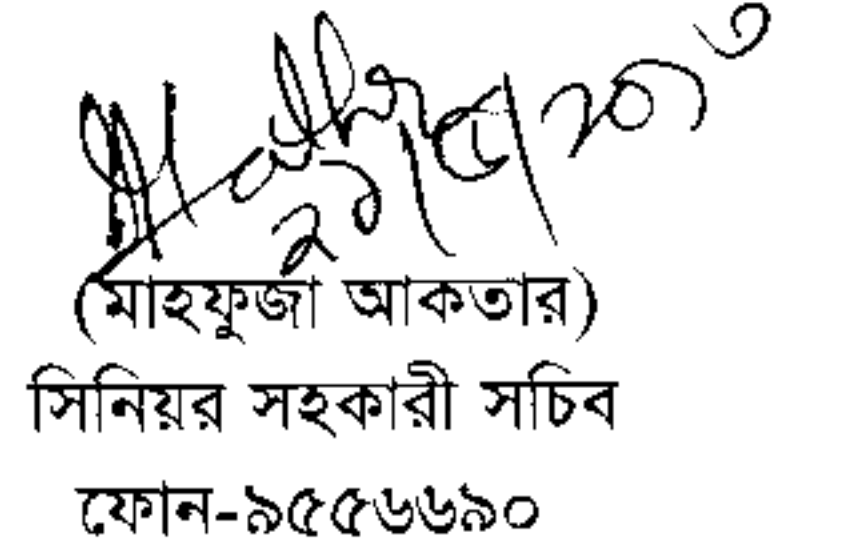 (মাহফুজা আকতার)
সিনিয়র সহকারী সচিব
ফোন-৯৫৫৬৬৯০